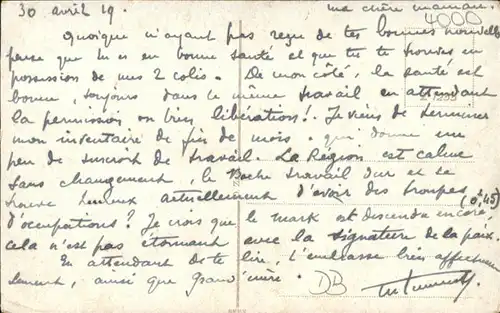 30 avril 19. ma chère maman. 4000
Quoique n'ayant pas reçu de tes bonnes nouvelles
pense que tu es en bonne santé et que tu te trouves en
possession de mes 2 colis. De mon côté, la santé est
bonne, toujours dans le même travail en attendant
la permission ou bien libération! Je viens de terminer
mon inventaire de fin de mois. qui donne un
peu de surcroit de travail. La Région est calme
sans changement, le Boche travail dur et se
trouve actuellement d'avoir des troupes
d'occupations? Je crois que le mark est descendu encore (0,45)
cela n'est pas étonnant avec la signature de la paix.
En attendant de te lire, t'embrasse bien affectueu
sement, ainsi que Grand'mère. DB